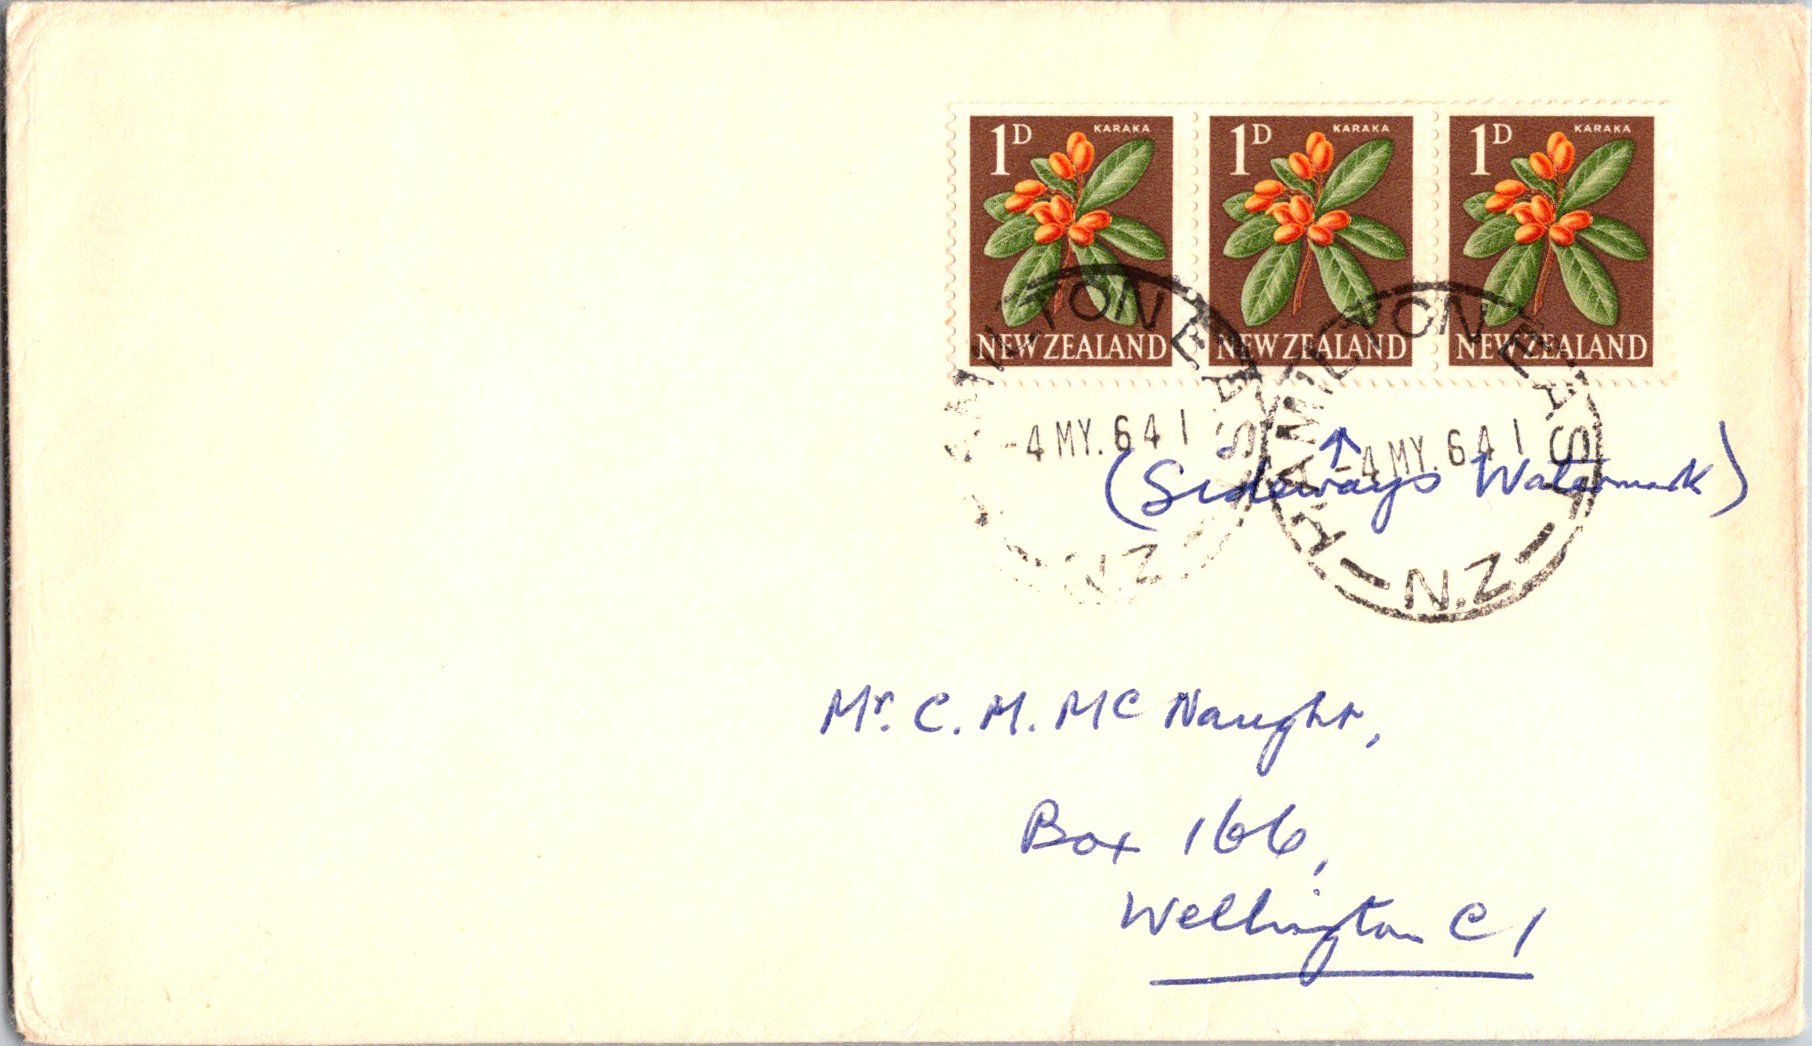 1D KARAKA
NEW ZEALAND
1D KARAKA
NEW ZEALAND
1D KARAKA
NEW ZEALAND
HAMILTON EAST
-4 MY.64 1
N.Z
HAMILTON EAST
-4 MY.64 1
N.Z
(Sideways Watermark)
Mr. C. M. Mc Naught,
Box 166,
Wellington C1